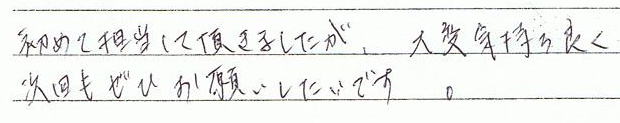 初めて担当して頂きましたが、大変気持ち良く
次回もぜひお願いしたいです。